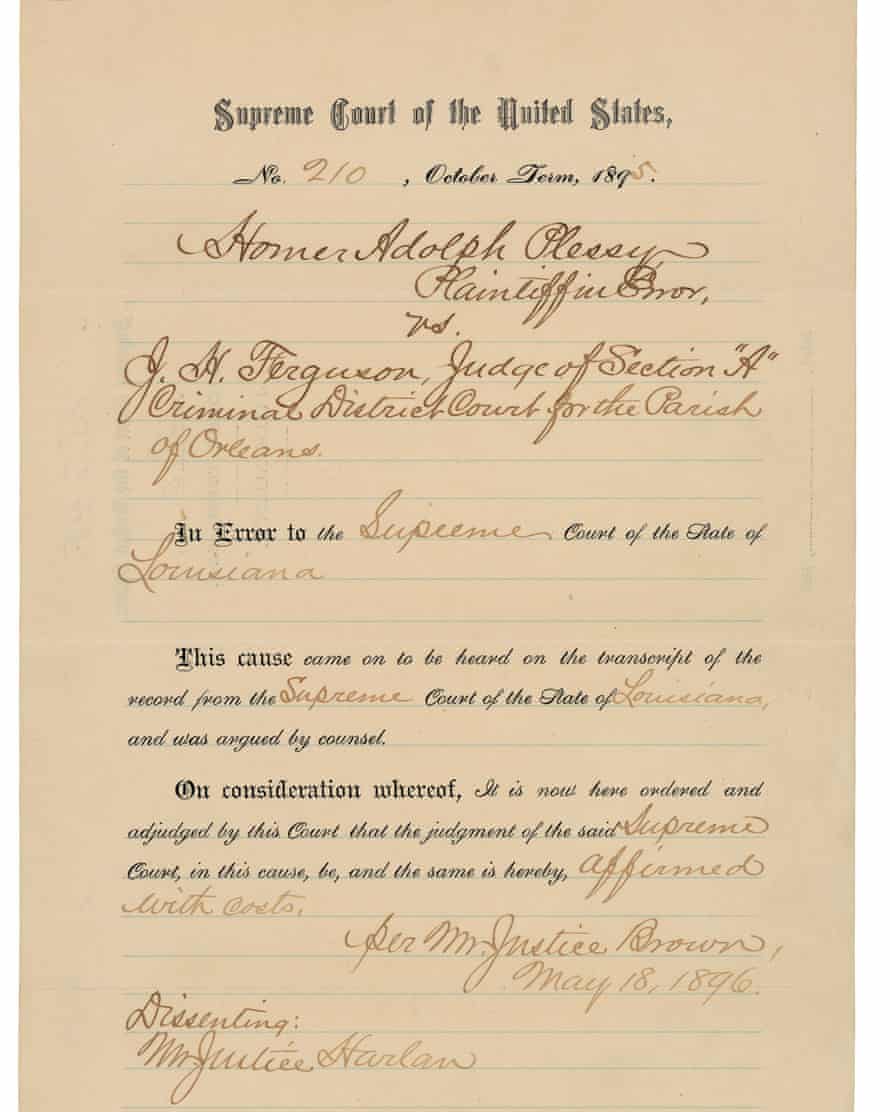 Supreme Court of the United States,
No. 210, October Term, 1895.
Homer Adolph Plessy,
Plaintiff in Error,
vs.
J. H. Ferguson, Judge of Section "A"
Criminal District Court for the Parish
of Orleans.
In Error to the Supreme Court of the State of
Louisiana
This cause came on to be heard on the transcript of the
record from the Supreme Court of the State of Louisiana,
and was argued by counsel.
On consideration whereof, It is now here ordered and
adjudged by this Court that the judgment of the said Supreme
Court, in this cause, be, and the same is hereby, affirmed
with costs.
per Mr. Justice Brown,
May 18, 1896.
Dissenting:
Mr. Justice Harlan